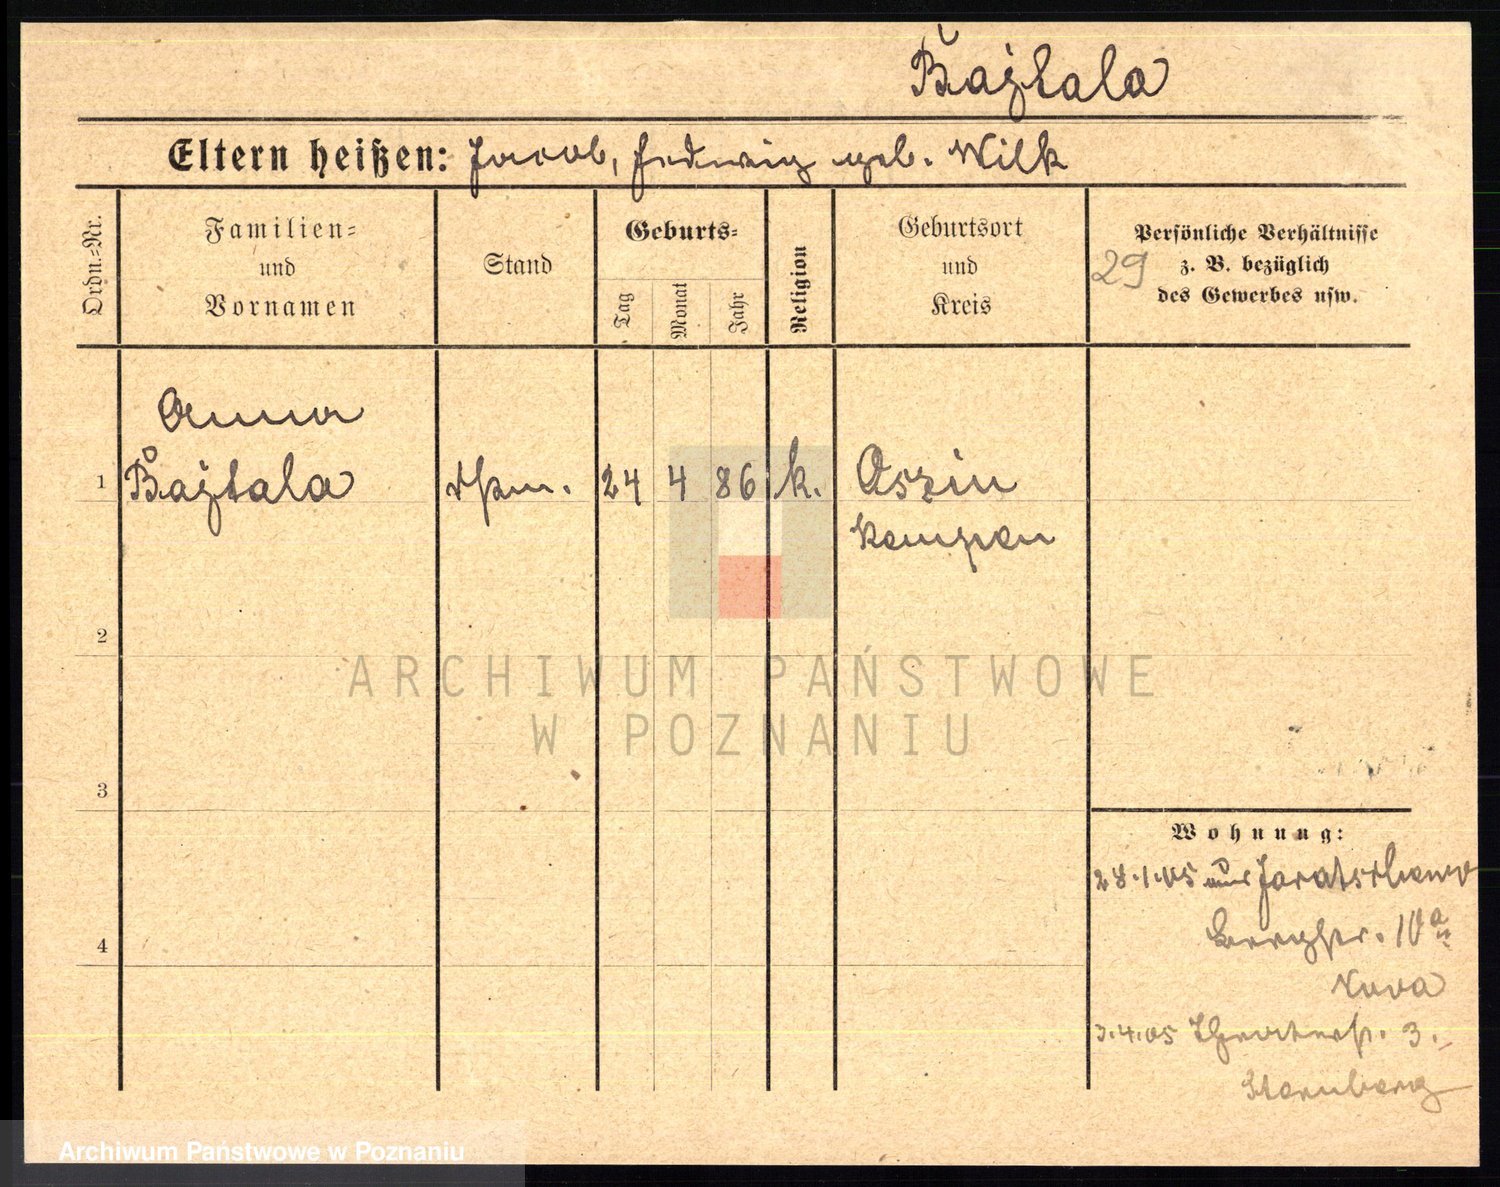 Bajtala
Eltern heißen: Jacob, Hedwig geb. Wilk
Ordn.-Nr.
Familien-
und
Vornamen
Stand
Geburts-
Tag
Monat
Jahr
Religion
Geburtsort
und
Kreis
Persönliche Verhältnisse
z. B. bezüglich
des Gewerbes usw.
29
Anna
1 Bajtala 24 4 86 k. Oszin
Kempen
2
ARCHIWUM PAŃSTWOWE
W POZNANIU
3
4
Wohnung:
28.1.05 aus Jaratschewo
Bergstr. 10a
3.4.05 Theaterstr. 3.
Sternberg
Archiwum Państwowe w Poznaniu